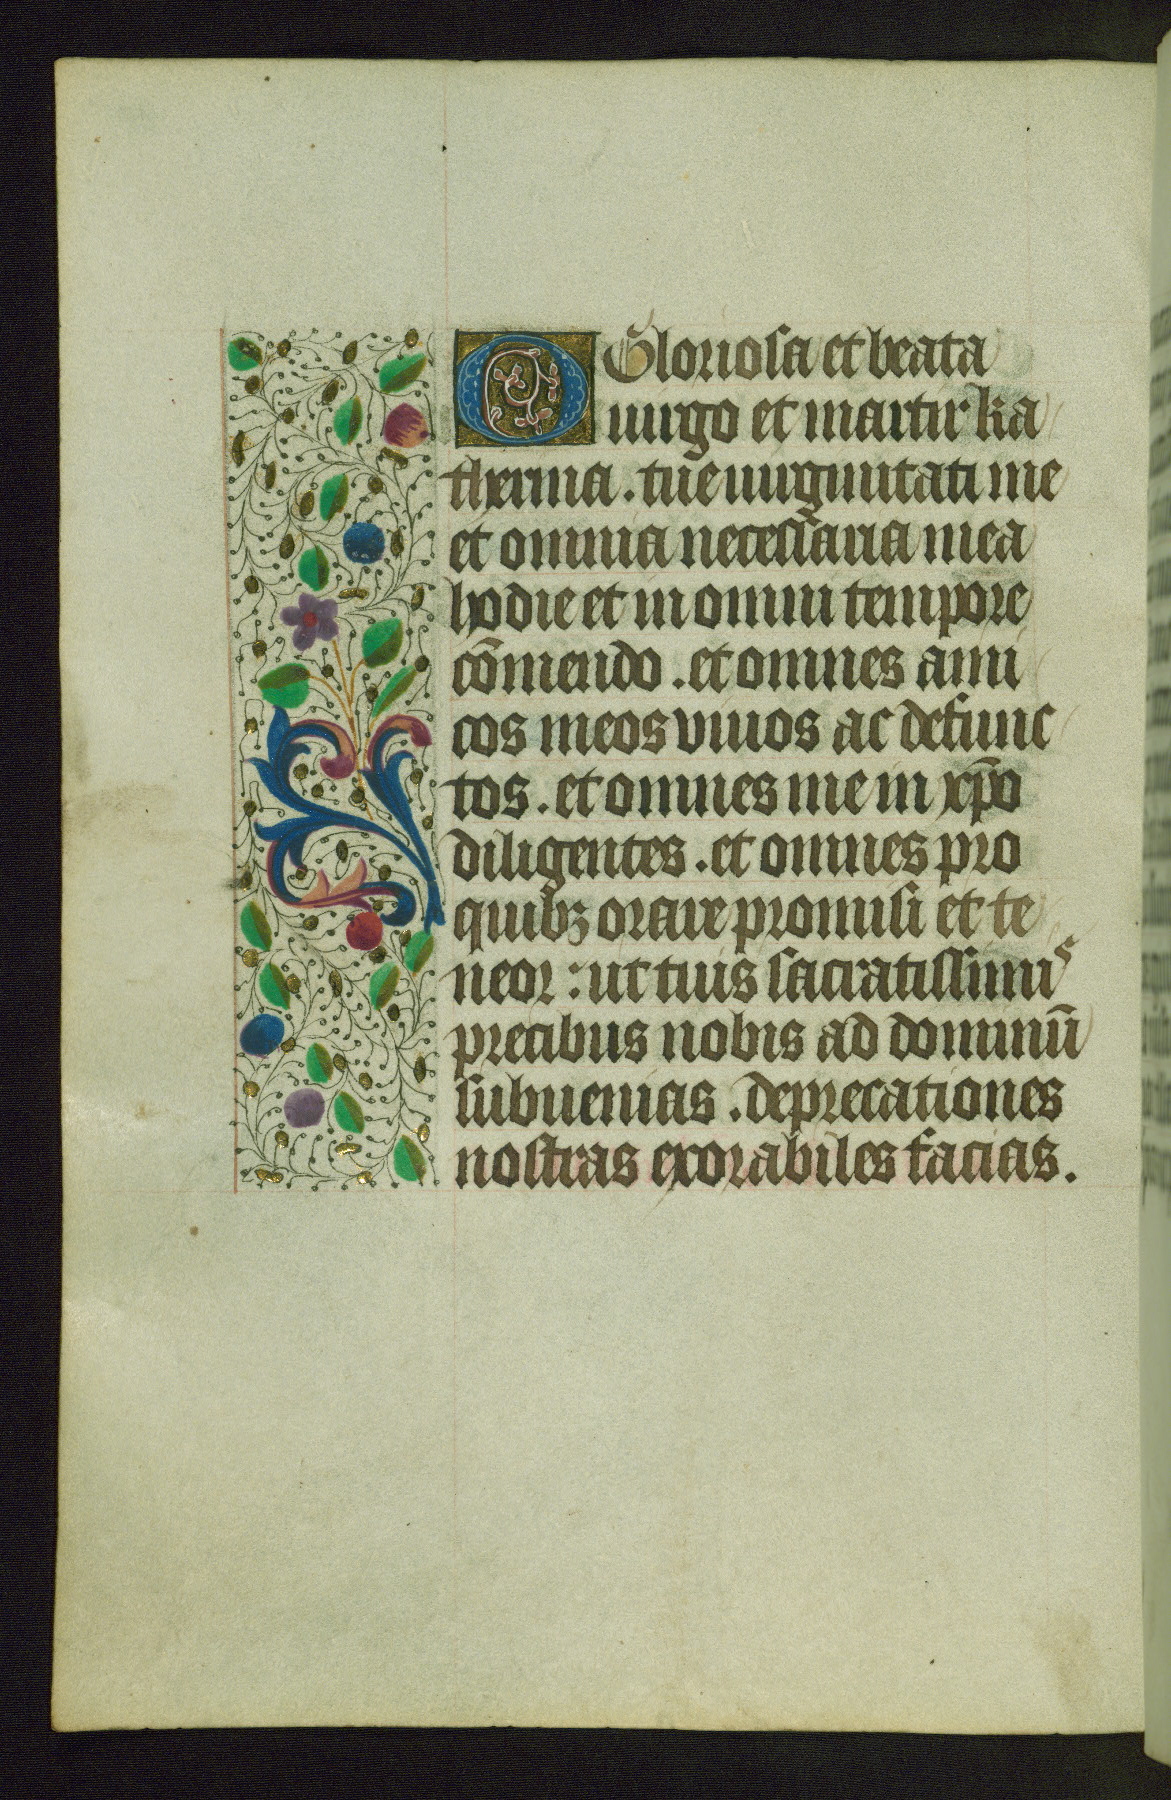 O Gloriosa et beata
uirgo et martir ka
therina . tue uirginitati me
et omnia necessaria mea
hodie et in omni tempore
cōmendo . et omnes ami
cos meos viuos ac defunc
tos . et omnes me in xp̄o
diligentes . et omnes pro
quibꝫ orare promisi et te
neor : ut tuis sacratissimis
precibus nobis ad dominū
subuenias . deprecationes
nostras exorabiles facias .